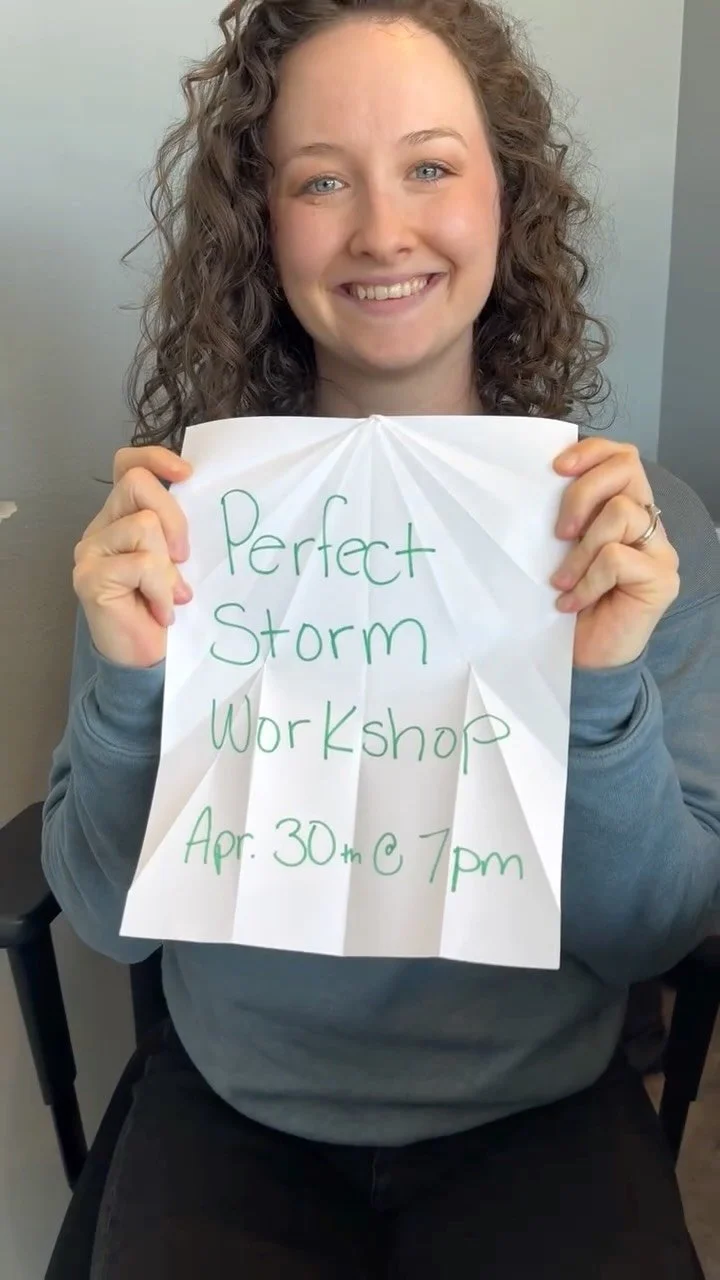 Perfect
Storm
Workshop
Apr. 30th @ 7pm